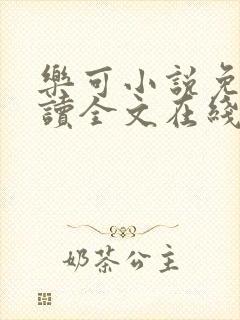 樂可小說免
讀全文在綫
奶茶公主